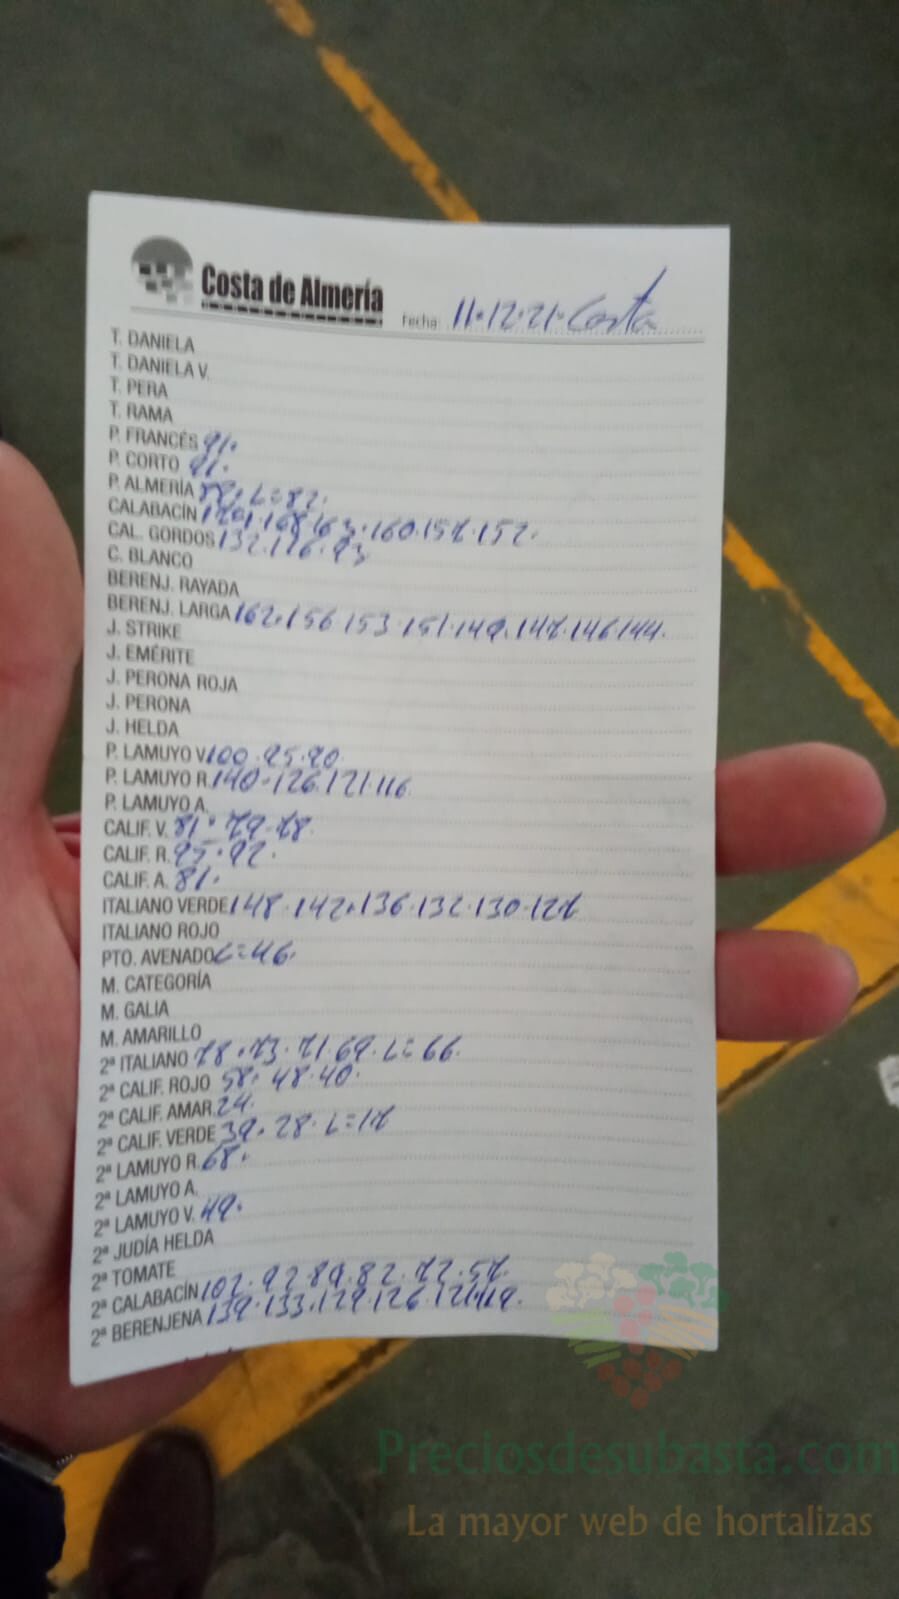 Costa de Almería
Fecha: 11.12.21. Costa
T. DANIELA
T. DANIELA V.
T. PERA
T. RAMA
P. FRANCÉS 91.
P. CORTO 91.
P. ALMERÍA 88. L=82.
CALABACÍN 168.163.160.157.152.
CAL. GORDOS 132.116.93
C. BLANCO
BERENJ. RAYADA
BERENJ. LARGA 162.156.153.151.149.147.146.144.
J. STRIKE
J. EMÉRITE
J. PERONA ROJA
J. PERONA
J. HELDA
P. LAMUYO V. 100.95.90
P. LAMUYO R. 140.126.121.116
P. LAMUYO A.
CALIF. V. 81.79.78.
CALIF. R. 95.92.
CALIF. A. 81.
ITALIANO VERDE 148.142.136.132.130.127
ITALIANO ROJO
PTO. AVENADO L=46.
M. CATEGORÍA
M. GALIA
M. AMARILLO
2ª ITALIANO 78.73.71.69.L=66.
2ª CALIF. ROJO 58.48.40.
2ª CALIF. AMAR. 24.
2ª CALIF. VERDE 39.28.L=17
2ª LAMUYO R. 68.
2ª LAMUYO A.
2ª LAMUYO V. 49.
2ª JUDÍA HELDA
2ª TOMATE
2ª CALABACÍN 102.92.89.82.72.57.
2ª BERENJENA 139.133.129.126.121.119.
Preciosdesubasta.com
La mayor web de hortalizas